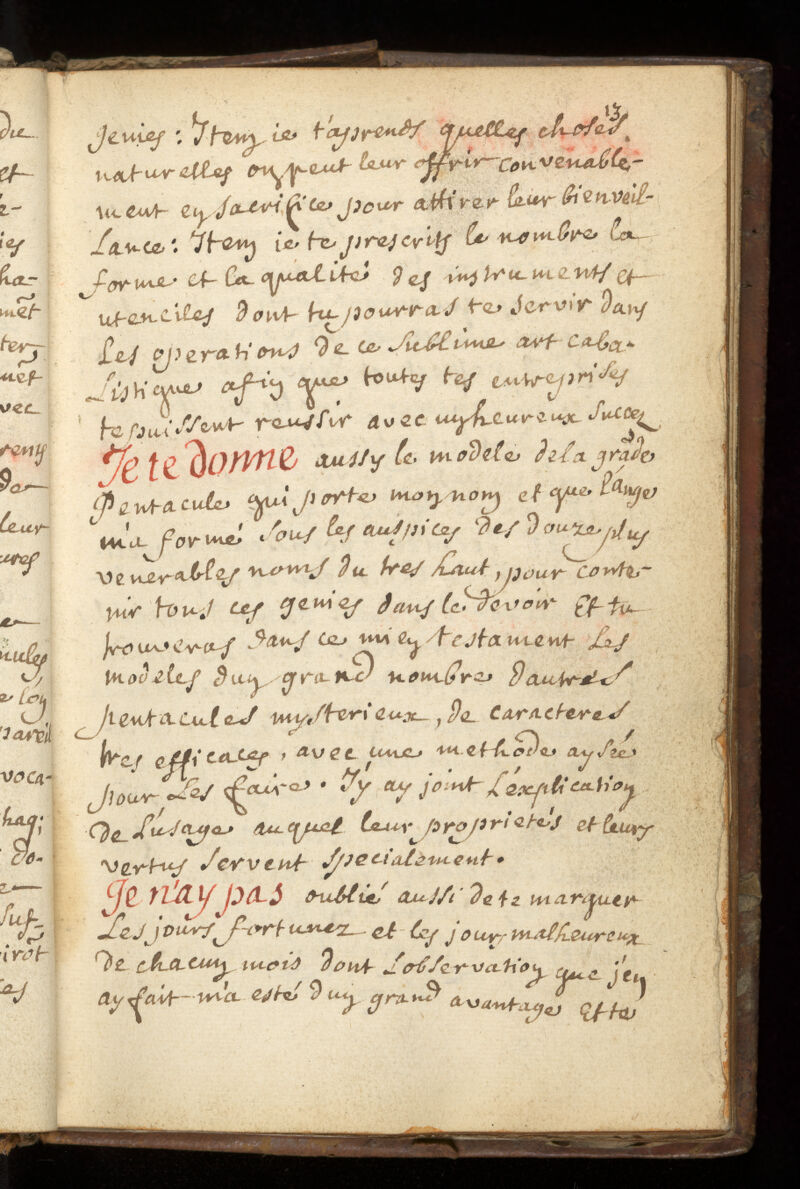 13
genies : Item ie t'aprends quelles choses
naturelles on peut leur offrir convenable-
ment en sacrifice pour attirer leur bienveil-
lance : Item ie te prescrits le nombre la
forme et la qualité des instruments et
utenciles dont tu pourras te servir dans
les operations de ce sublime art caba-
listique afin que toutes tes entreprises
te puissent reussir avec un heureux succez
Je te donne aussy le modele de la grãde
Pentacule qui porte mon nom et que l'ange
m'a formé sous les auspices des douze plus
venerables noms du tres haut, pour conte-
nir tous ces genies dans le devoir Et tu
trouveras dans ce mien testament les
modeles dun grand nombre dautres
pentacules mysterieux, de caracteres
tres efficaces, avec une methode aysée
pour les faire. J'y ay joint l'éxplication
de l'usage auquel leur proprietés et leurs
vertus servent specialement.
Je n'ay pas oublié aussi de te marquer
les jours fortunez et les jours malheureux
de chacun mois dont l'observation que j'en
ay fait m'a esté d'un grand avantage et te
die
et
ies
ha-
mẽt
ter
mẽt
vec
de
leur
e
nules
e loy
pareil
voca-
haq;
do-
suf-
irõt
es